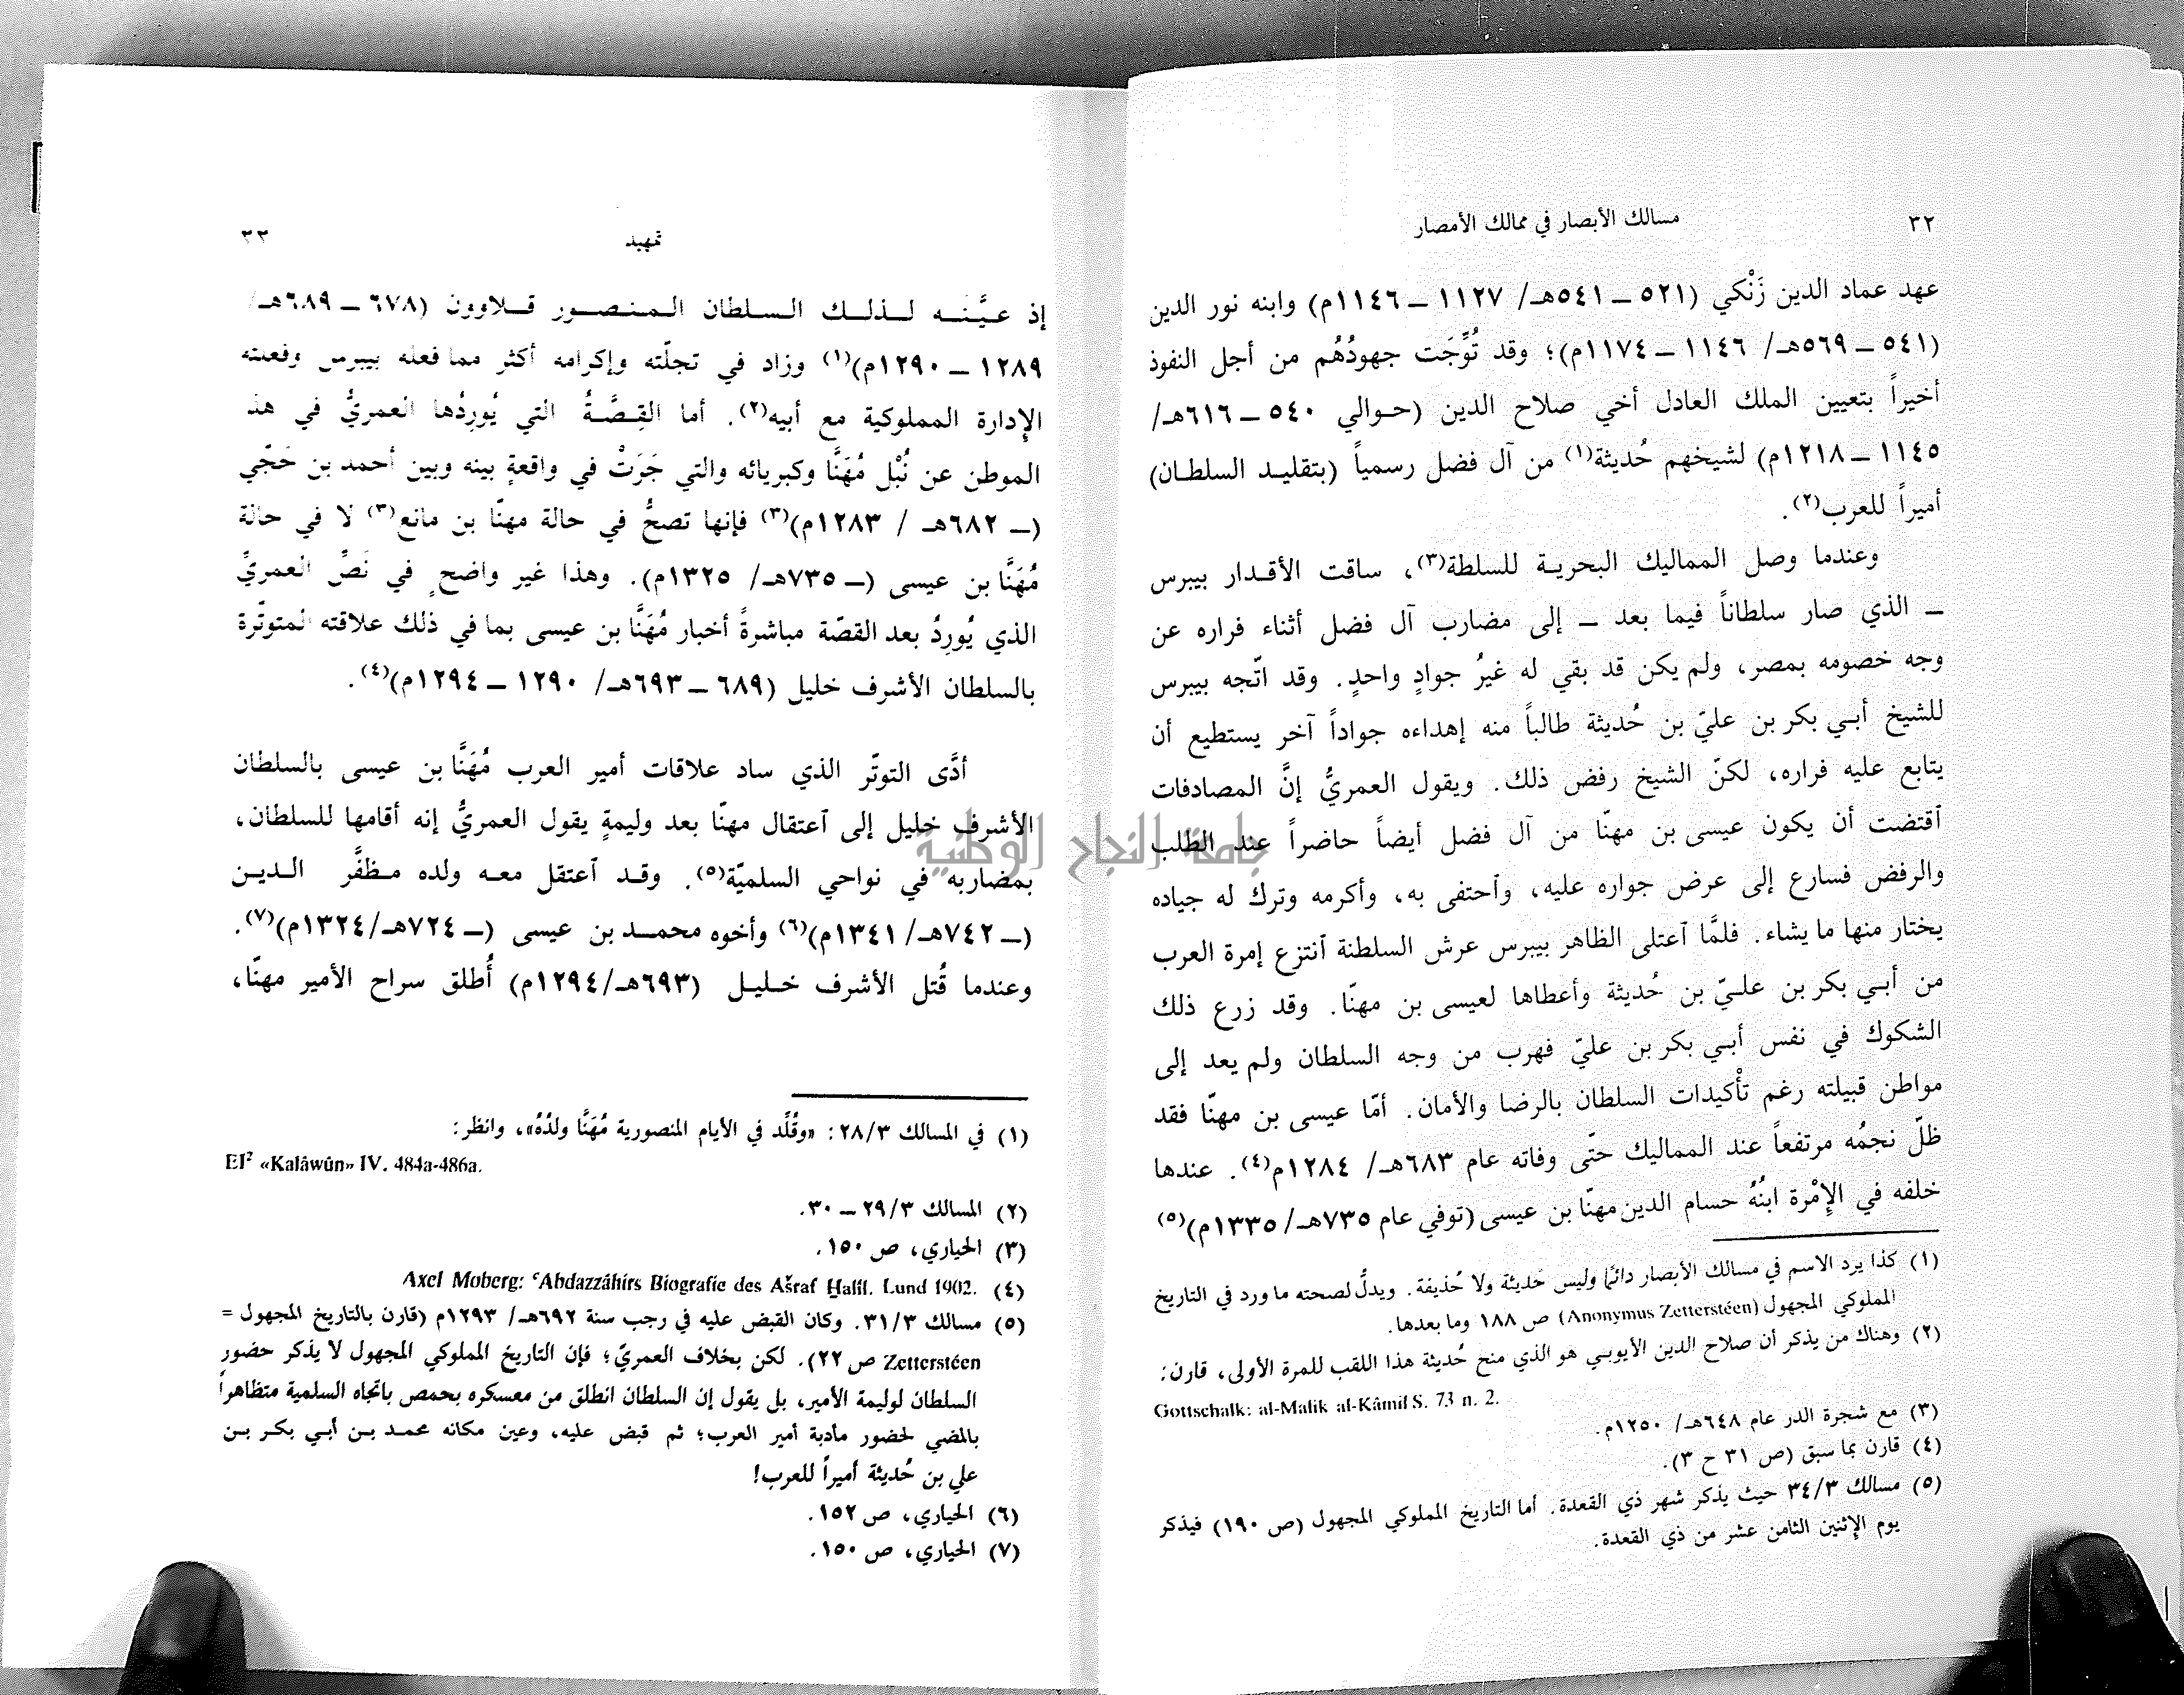 ٣٢
مسالك الأبصار في ممالك الأمصار
عهد عماد الدين زَنْكي (٥٢١ ــ ٥٤١هـ/ ١١٢٧ ــ ١١٤٦م) وابنه نور الدين
(٥٤١ ــ ٥٦٩هـ/ ١١٤٦ ــ ١١٧٤م)؛ وقد تُوِّجَت جهودُهُم من أجل النفوذ
أخيراً بتعيين الملك العادل أخي صلاح الدين (حوالي ٥٤٠ ــ ٦١٦هـ/
١١٤٥ ــ ١٢١٨م) لشيخهم حُديثة(١) من آل فضل رسمياً (بتقليد السلطان)
أميراً للعرب(٢).
وعندما وصل المماليك البحرية للسلطة(٣)، ساقت الأقدار بيبرس
ــ الذي صار سلطاناً فيما بعد ــ إلى مضارب آل فضل أثناء فراره عن
وجه خصومه بمصر، ولم يكن قد بقي له غيرُ جوادٍ واحدٍ. وقد اتّجه بيبرس
للشيخ أبي بكر بن عليّ بن حُديثة طالباً منه إهداءه جواداً آخر يستطيع أن
يتابع عليه فراره، لكنّ الشيخ رفض ذلك. ويقول العمريُّ إنَّ المصادفات
آقتضت أن يكون عيسى بن مهنّا من آل فضل أيضاً حاضراً عند الطلب
والرفض فسارع إلى عرض جواره عليه، وآحتفى به، وأكرمه وترك له جياده
يختار منها ما يشاء. فلمَّا آعتلى الظاهر بيبرس عرش السلطنة آنتزع إمرة العرب
من أبي بكر بن عليّ بن حُديثة وأعطاها لعيسى بن مهنّا. وقد زرع ذلك
الشكوك في نفس أبي بكر بن عليّ فهرب من وجه السلطان ولم يعد إلى
مواطن قبيلته رغم تأكيدات السلطان بالرضا والأمان. أمّا عيسى بن مهنّا فقد
ظلّ نجمُه مرتفعاً عند المماليك حتّى وفاته عام ٦٨٣هـ/ ١٢٨٤م(٤). عندها
خلفه في الإِمْرة ابنُهُ حسام الدين مهنّا بن عيسى (توفي عام ٧٣٥هـ/ ١٣٣٥م)(٥)
(١) كذا يرد الاسم في مسالك الأبصار دائماً وليس حَديثة ولا حُذيفة. ويدلُّ لصحته ما ورد في التاريخ
المملوكي المجهول (Anonymus Zetterstéen) ص ١٨٨ وما بعدها.
(٢) وهناك من يذكر أن صلاح الدين الأيوبي هو الذي منح حُديثة هذا اللقب للمرة الأولى، قارن:
Gottschalk: al-Malik al-Kâmil S. 73 n. 2.
(٣) مع شجرة الدر عام ٦٤٨هـ/ ١٢٥٠م.
(٤) قارن بما سبق (ص ٣١ ح ٣).
(٥) مسالك ٣٤/٣ حيث يذكر شهر ذي القعدة. أما التاريخ المملوكي المجهول (ص ١٩٠) فيذكر
يوم الإثنين الثامن عشر من ذي القعدة.
تمهيد
٣٣
إذ عيَّنَه لذلك السلطان المنصور قلاوون (٦٧٨ ــ ٦٨٩هـ/
١٢٨٩ ــ ١٢٩٠م)(١) وزاد في تجلّته وإكرامه أكثر مما فعله بيبرس وفعلته
الإدارة المملوكية مع أبيه(٢). أما القِصَّةُ التي يُورِدُها العمريُّ في هذ
الموطن عن نُبْل مُهَنَّا وكبريائه والتي جَرَتْ في واقعةٍ بينه وبين أحمد بن حَجّي
(ــ ٦٨٢هـ / ١٢٨٣م)(٣) فإنها تصحُّ في حالة مهنّا بن مانع(٣) لا في حالة
مُهَنَّا بن عيسى (ــ ٧٣٥هـ/ ١٣٢٥م). وهذا غير واضحٍ في نَصِّ العمريِّ
الذي يُورِدُ بعد القصّة مباشرةً أخبار مُهَنَّا بن عيسى بما في ذلك علاقته المتوتّرة
بالسلطان الأشرف خليل (٦٨٩ ــ ٦٩٣هـ/ ١٢٩٠ ــ ١٢٩٤م)(٤).
أدَّى التوتّر الذي ساد علاقات أمير العرب مُهَنَّا بن عيسى بالسلطان
الأشرف خليل إلى آعتقال مهنّا بعد وليمةٍ يقول العمريُّ إنه أقامها للسلطان،
بمضاربه في نواحي السلميّة(٥). وقد آعتقل معه ولده مظفَّر الدين
(ــ ٧٤٢هـ/ ١٣٤١م)(٦) وأخوه محمد بن عيسى (ــ ٧٢٤هـ/١٣٢٤م)(٧).
وعندما قُتل الأشرف خليل (٦٩٣هـ/١٢٩٤م) أُطلق سراح الأمير مهنّا،
(١) في المسالك ٢٨/٣: «وقُلِّد في الأيام المنصورية مُهَنَّا ولدُهُ»، وانظر:
EI² «Kalâwûn» IV. 484a-486a.
(٢) المسالك ٢٩/٣ ــ ٣٠.
(٣) الحياري، ص ١٥٠.
(٤) Axel Moberg: ʿAbdazzâhirs Biografie des Ašraf Ḫalîl. Lund 1902.
(٥) مسالك ٣١/٣. وكان القبض عليه في رجب سنة ٦٩٢هـ/ ١٢٩٣م (قارن بالتاريخ المجهول =
Zetterstéen ص ٢٢). لكن بخلاف العمريّ؛ فإن التاريخ المملوكي المجهول لا يذكر حضور
السلطان لوليمة الأمير، بل يقول إن السلطان انطلق من معسكره بحمص باتجاه السلمية متظاهراً
بالمضي لحضور مأدبة أمير العرب؛ ثم قبض عليه، وعين مكانه محمد بن أبي بكر بن
علي بن حُديثة أميراً للعرب!
(٦) الحياري، ص ١٥٢.
(٧) الحياري، ص ١٥٠.
جامعة النجاح الوطنية